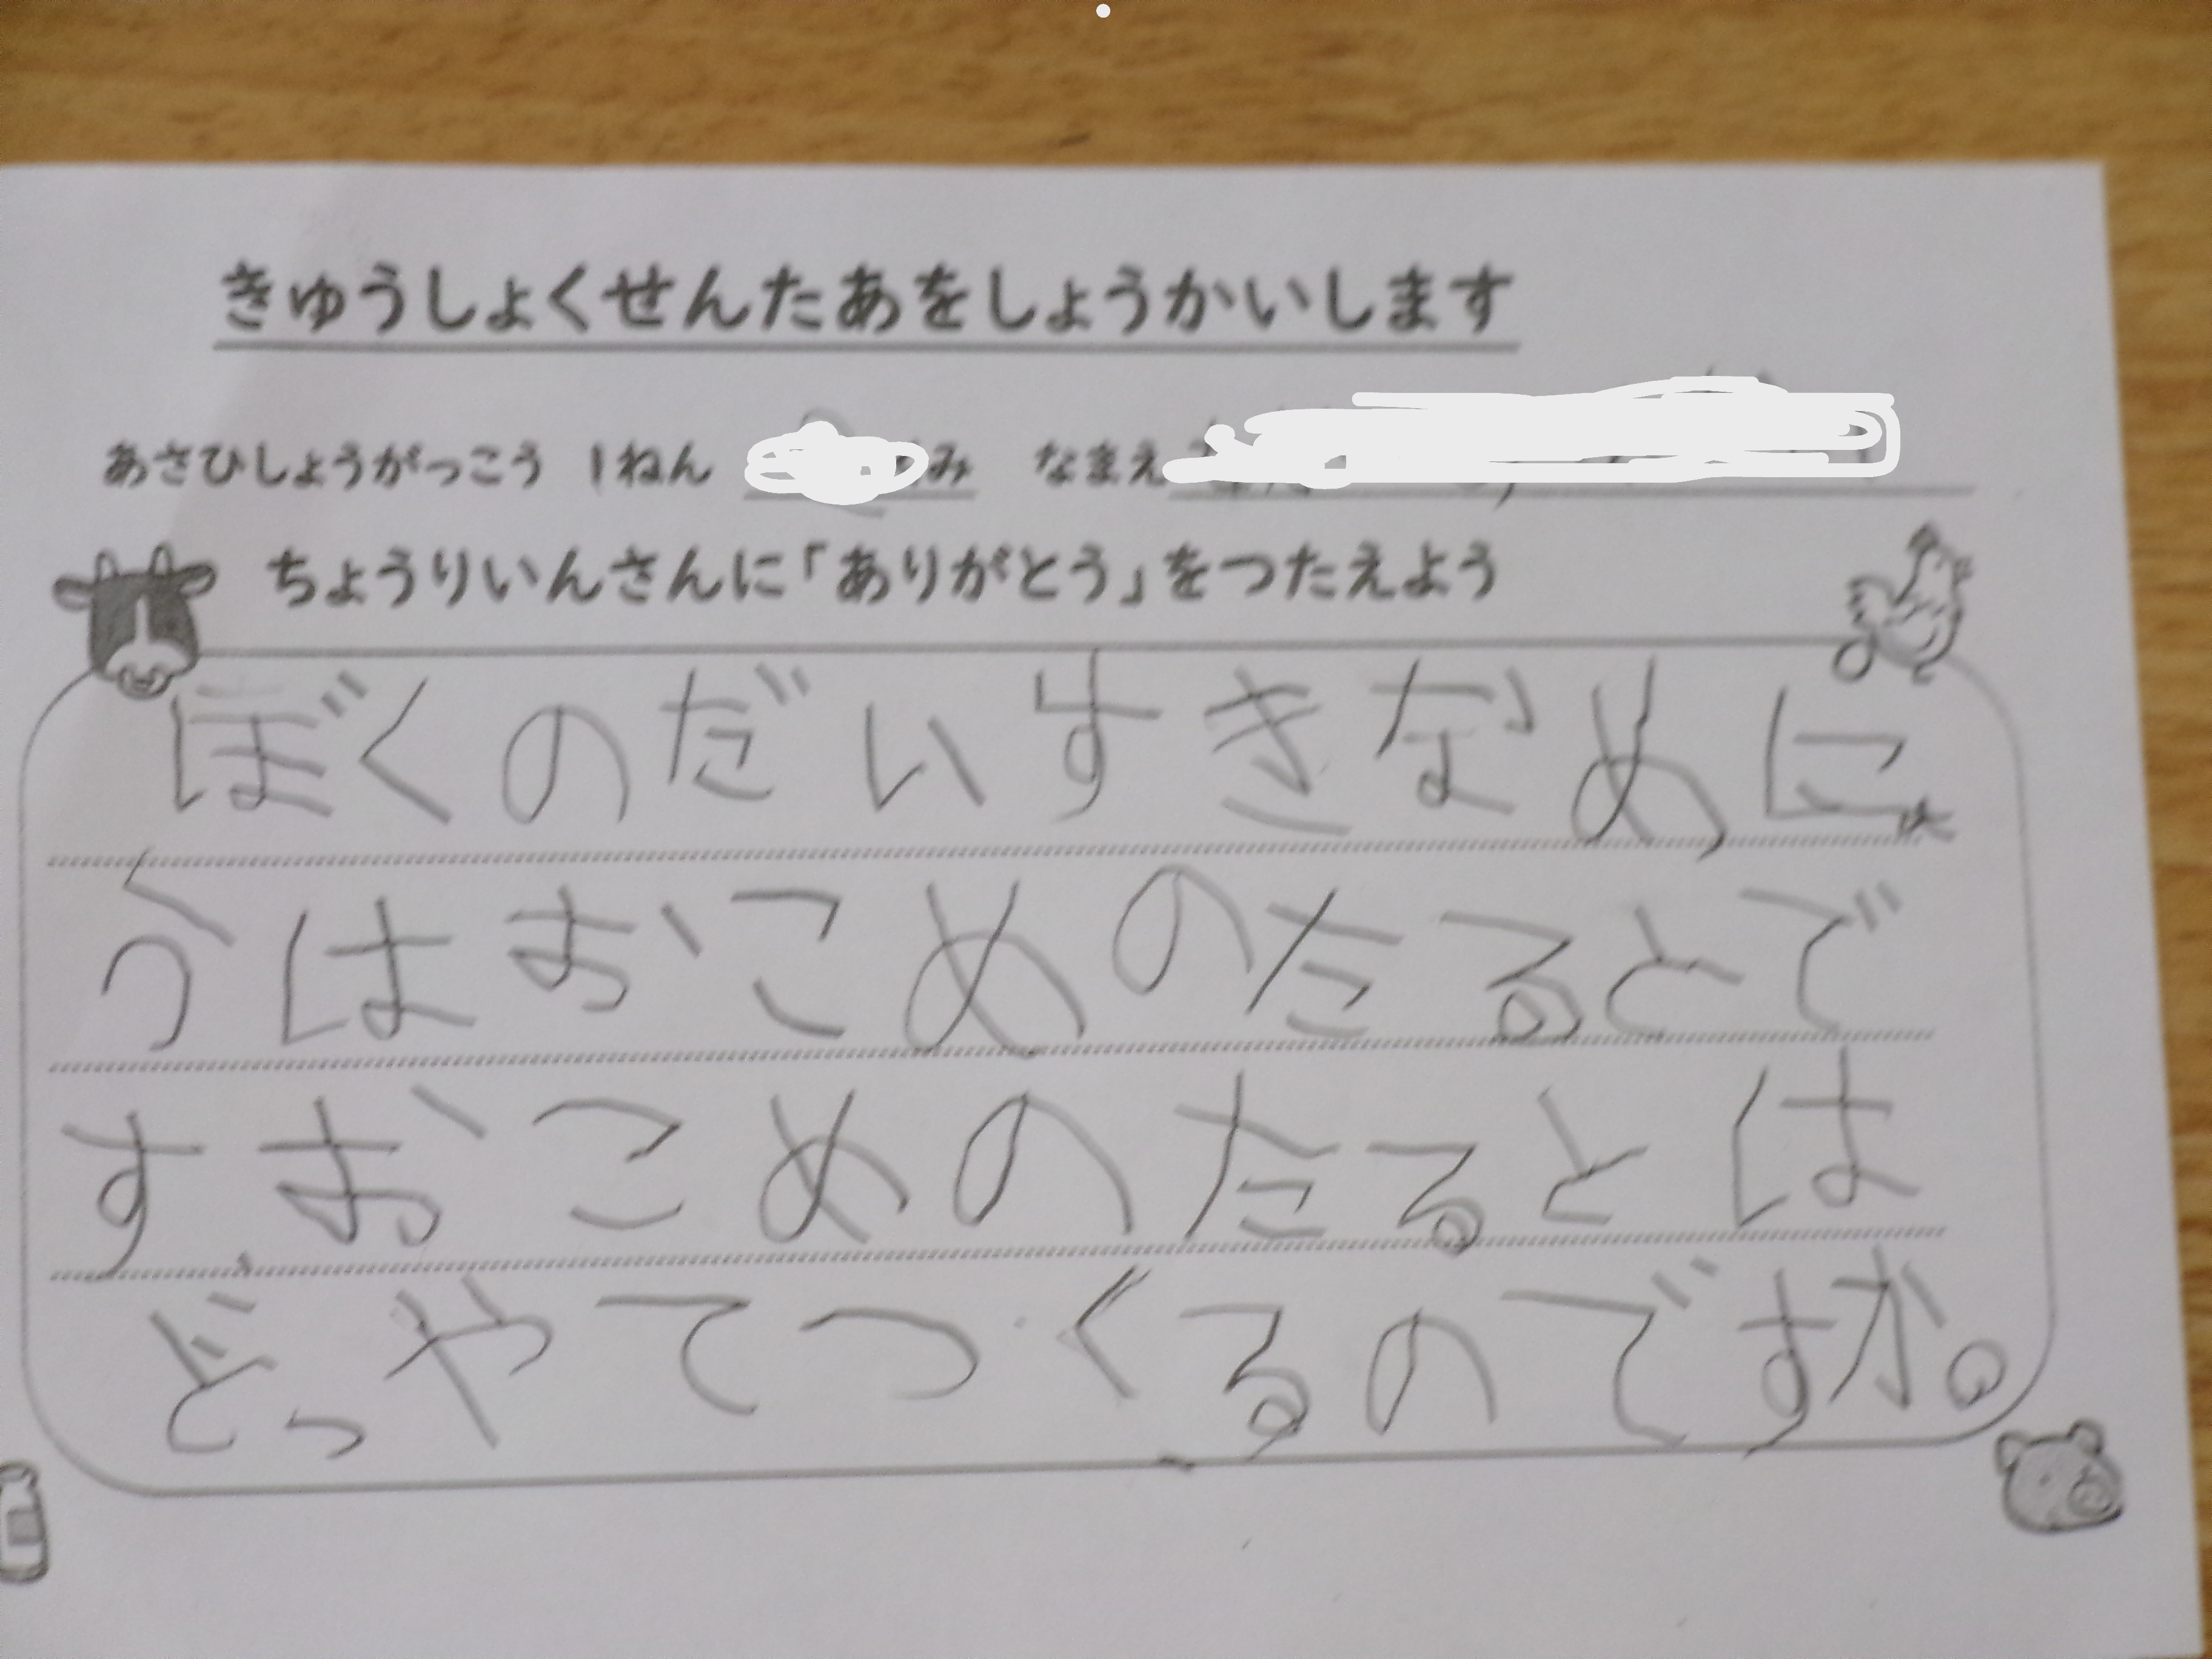 きゅうしょくせんたあをしょうかいします
あさひしょうがっこう 1ねん み なまえ
ちょうりいんさんに「ありがとう」をつたえよう
ぼくのだいすきなめに
うはおこめのたるとで
すおこめのたるとは
どっやてつくるのですか。